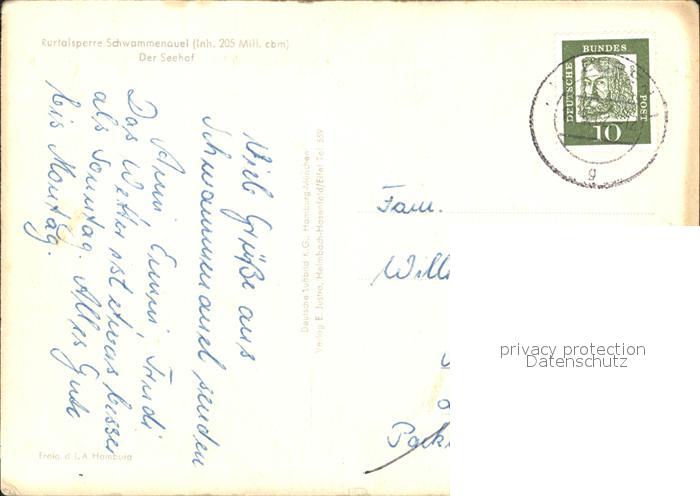 Rurtalsperre Schwammenauel (Inh. 205 Mill. cbm)
Der Seehof
Viele Grüße aus
Schwammenauel senden
Anni, Emmi, Trudi
Das Wetter ist etwas besser
als Sonntag. Alles Gute
bis Montag.
Freig. d. L A Hamburg
Deutsche Luftbild K.G., Hamburg-München
Verlag E. Justra, Heimbach-Hasenfeld/Eifel Tel 559
DEUTSCHE
BUNDES
POST
10
g
Fam.
Will
privacy protection
Datenschutz